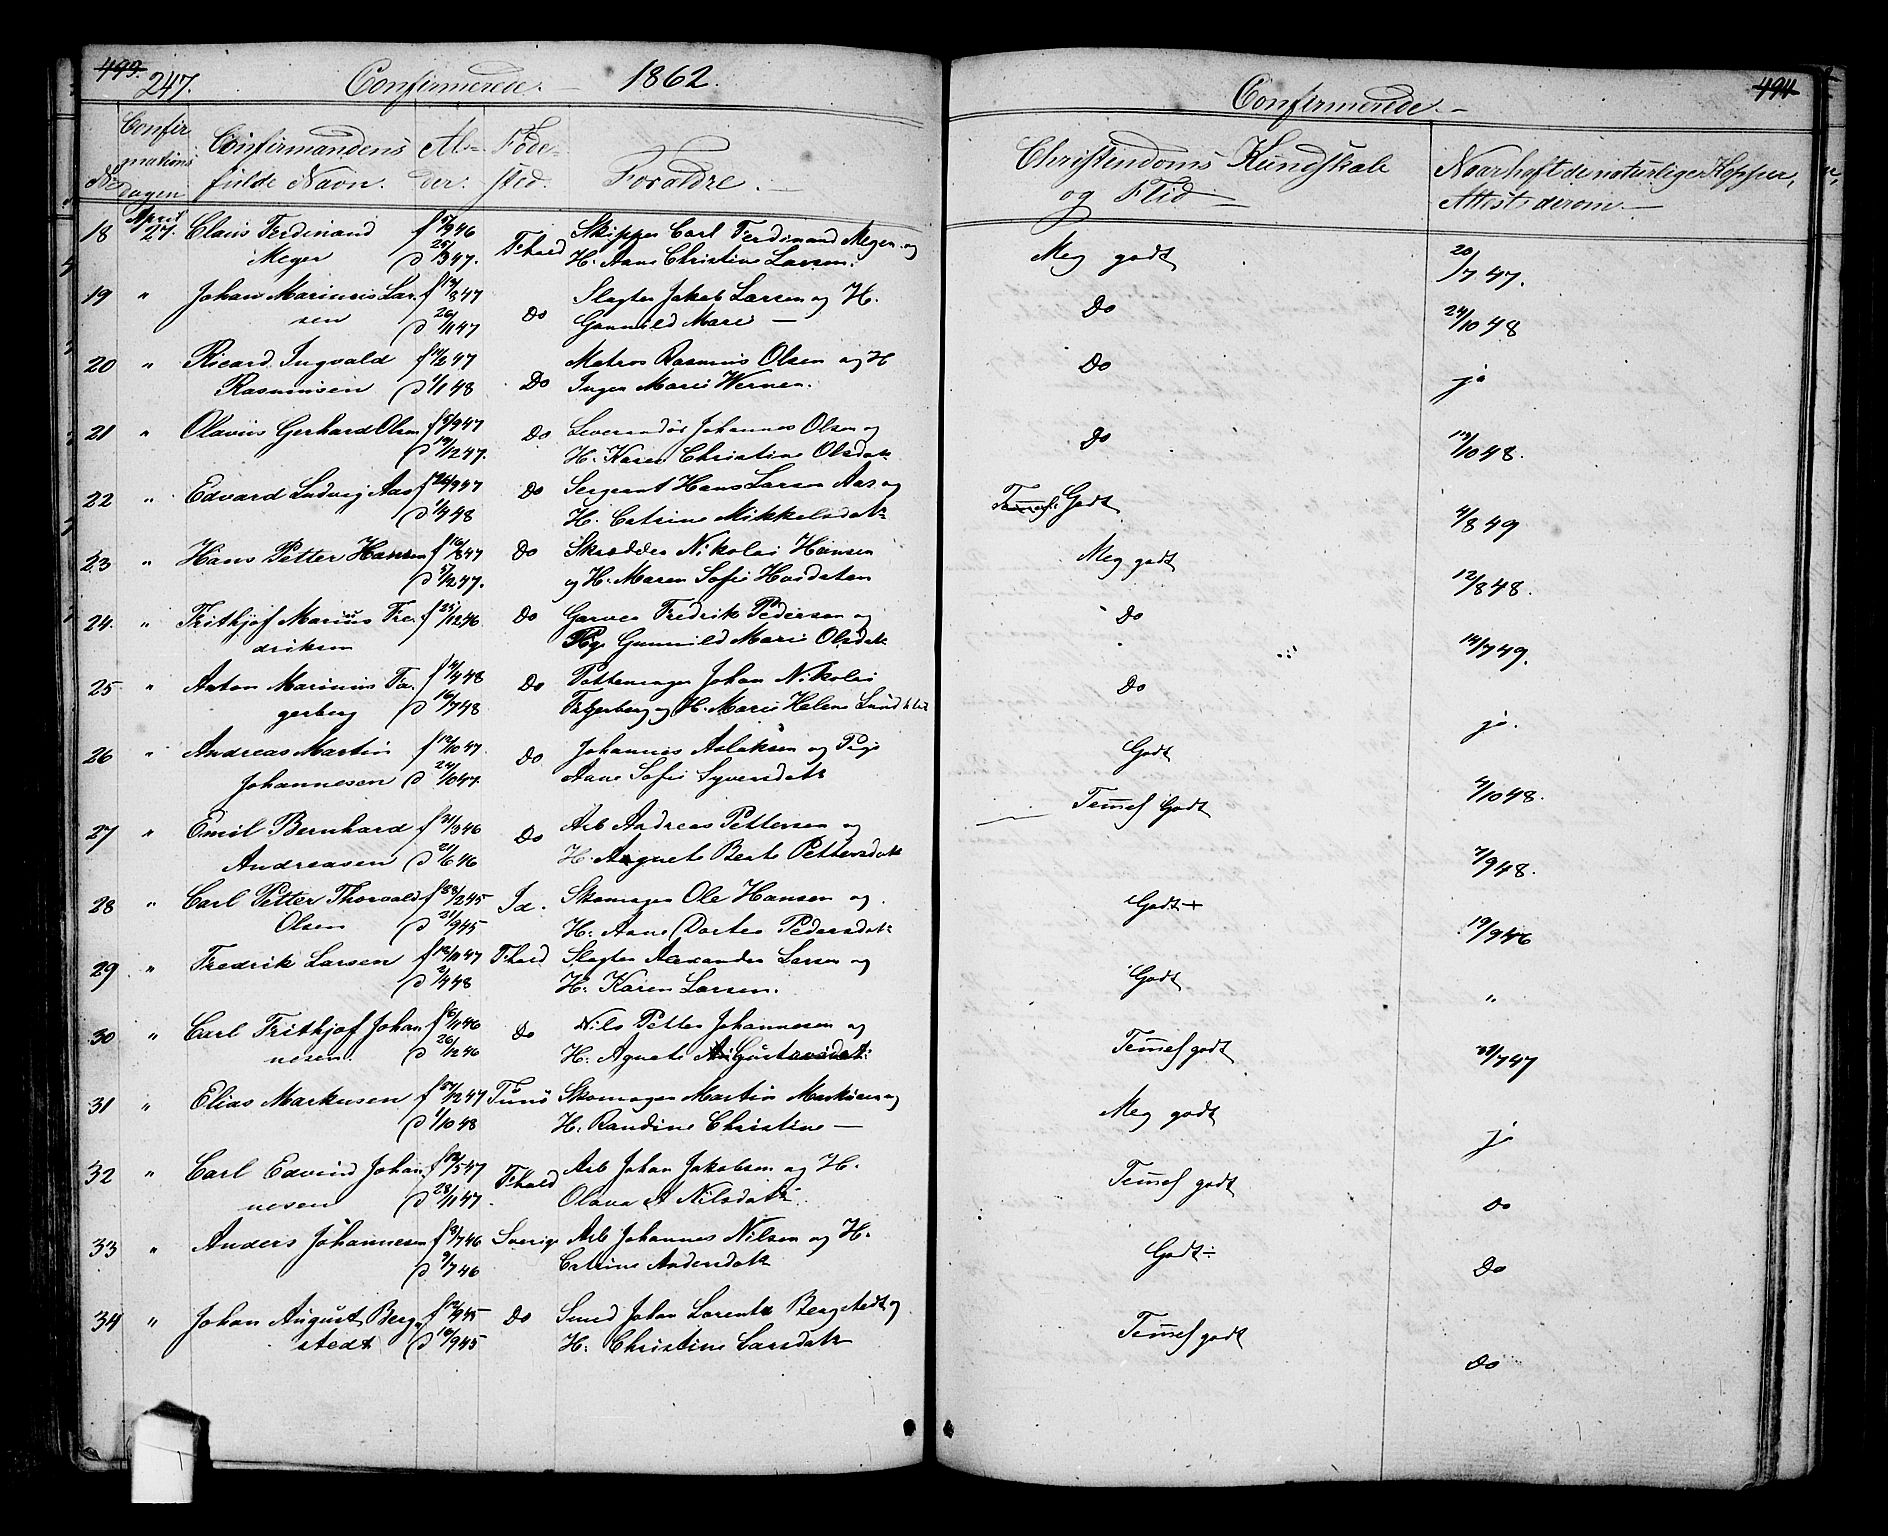 493.
247. Confirmerede. 1862.
No Confirmations Dagen Confirmandens fulde Navn. Alder. Fødested. Foraldre.
18 April 27. Claus Ferdinand f 946 Skipper Carl Ferdinand Meyer og
Meyer d 25/3 47. Fhald H. Anne Christine Larsen.
19 " Johan Marinius Lar f 8 47 Slagter Jakob Larsen og H.
sen d 26/11 47 Do Gunnild Marie —
20 " Ricard Ingvald f 2 47 Matros Rasmus Olsen og H
Rasmussen d 1/1 48 Do Inger Marie Werner.
21 " Olavus Gerhard Olsen f 9 47 Do Leverandør Johannes Olsen og
d 19/12 47. H. Karen Christine Olsdatr
22 " Edvard Ludvig Aas f 9 47 Do Sergeant Hans Larsen Aas og
d 48 H. Catrine Mikkelsdatr
23 " Hans Petter Hansen f 16/8 47 Do Skrædder Nikolai Hansen
d 12 47. og H. Maren Sofie
24. " Frithjof Marius Fre f 25/12 46 Do Garver Fredrik Pedersen og
driksen Pige Gunnild Marie Olsdatr
25 " Anton Marinius Fa f 48 Do Pottemager Johan Nikolai
gerberg d 16/7 48 Fagerberg og H. Marie Helene
26 " Andreas Martin f 12/10 47. Do Johannes Aslaksen og Pige
Johannesen d 24/10 47. Anne Sofie Syversdatr
27 " Emil Bernhard f 21/3 46 Do Arb Andreas Pettersen og
Andreasen d 21/6 46 H. Agnete Berte Pettersdatr
28 " Carl Petter Thorvald f 2 45 Id. Skomager Ole Hansen og
Olsen d 21/9 45 H. Anne Dortea Pedersdatr
29 " Fredrik Larsen f 11 47 Fhald Slagter Alexander Larsen og
d 2/4 48 H. Karen Larsen.
30 " Carl Frithjof Johan f 6/11 46 Do Nils Petter Johannesen og
nesen. d 26/12 46 H. Agnete Gustavsdat:
31 " Elias Markusen f 12 47 Tunø Skomager Martin Markusen og
d 1/10 48 H. Randine Christine —
32 " Carl Edvind Johan f 5 47 Fhald Arb Johan Jakobsen og H.
nesen d 28/11 47. Olava A Nilsdatr
33 " Anders Johannesen f 7 46 Sverige Arb Johannes Nilsen og H.
d 9/7 46 Catrine Andersdatr
34 " Johan August Berg f 12/9 45 Do Smed Johan Lorentz Bergstedt og
stedt d 9 45 H. Christine Larsdatr
494
Confirmerede.
Christendoms Kundskab og Flid
Naar haft de naturlige Kopper, Attest derom.
Meg godt 20/7 47.
Do 24/10 48
Do ja
Do 19/10 48.
Godt 4/8 49
Meg godt 12/8 48.
Do 14/7 49.
Do ja.
Godt 4/10 48.
Temel Godt 7/9 48.
Godt + 19/9 46
Godt "
Temel godt 7 47
Meg godt ja
Temel godt Do
Godt ÷ Do
Temel godt Do